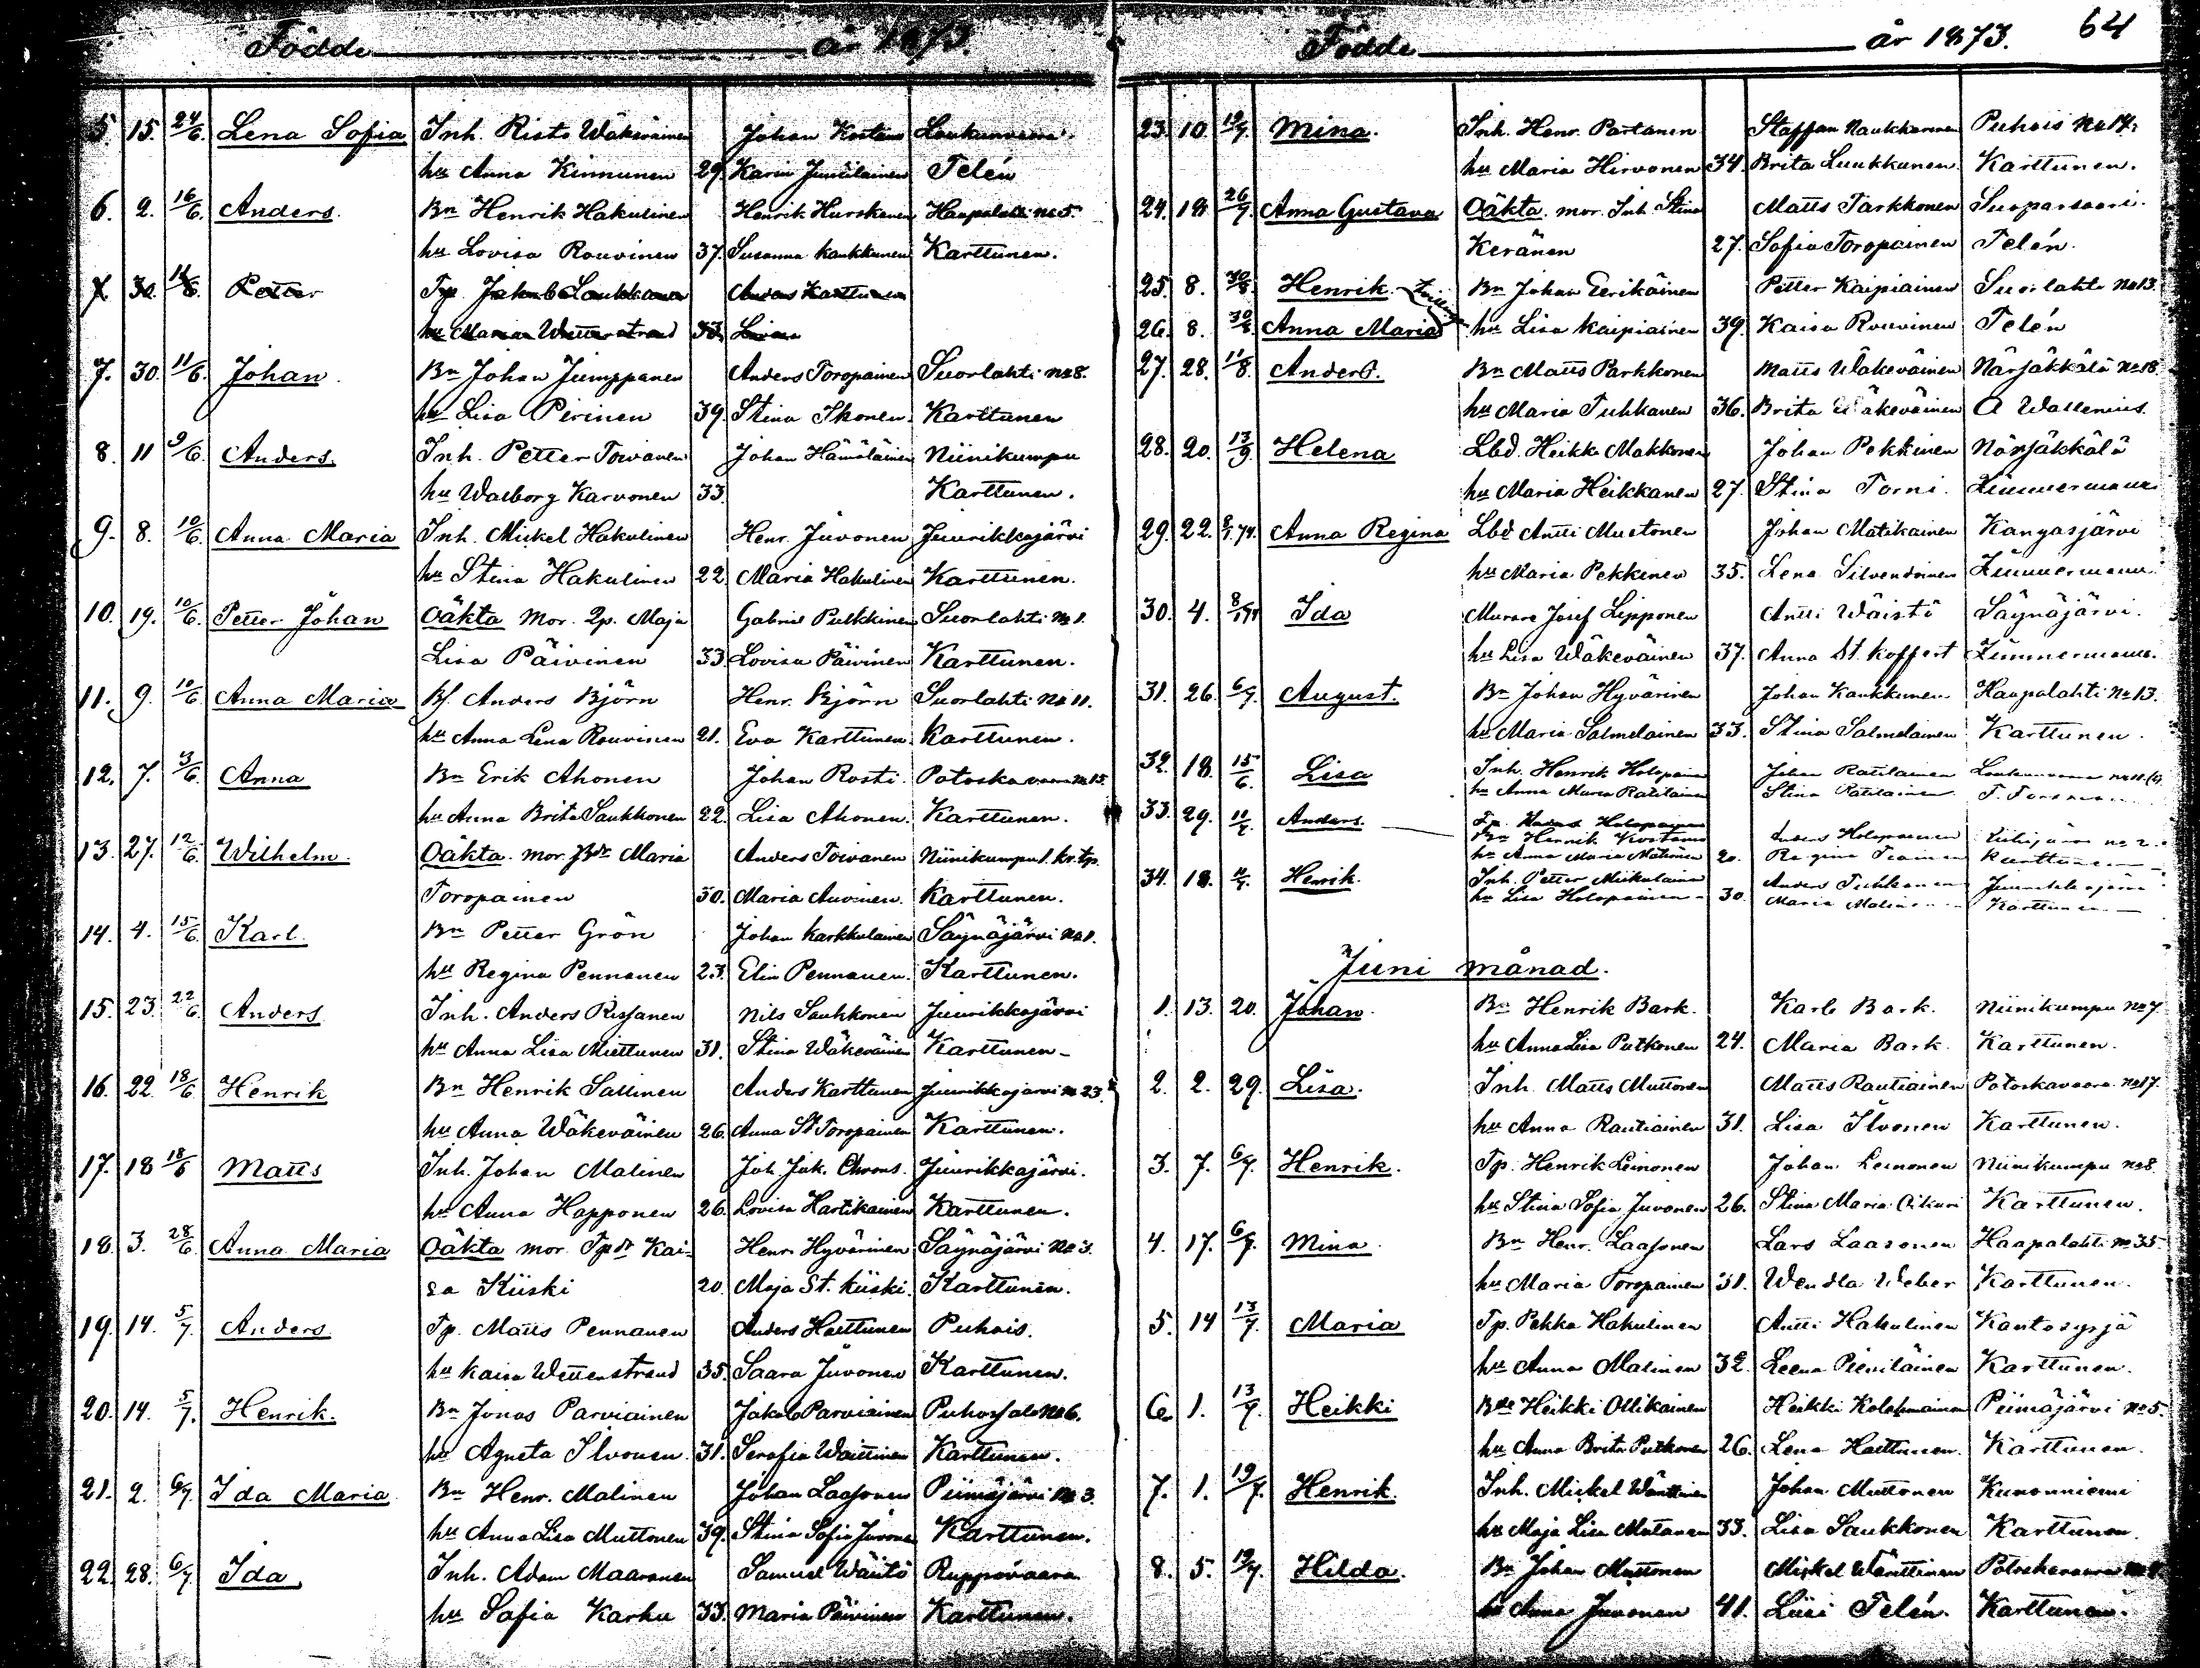 Födde år 1873.
5. 15. 24/6. Lena Sofia Inh. Risto Wäkeväinen Johan Kostamo Loukunvaara.
hu Anna Kinnunen 29. Karin Jumälainen Telén
6. 2. 16/6. Anders. Bn Henrik Hakulinen Henrik Hurskanen Haapalahti no 5.
hu Lovisa Rouvinen 37. Susanna Kaukkunen Karttunen.
7. 30. 11/6. Petter Tp. Jakob Laukkanen Anders Karttunen
hu Maria Wetterstrand 33. Lovisa
7. 30. 11/6. Johan. Bn Johan Jumppanen Anders Toropainen Suorlahti no 8.
hu Lisa Pirinen 39. Stina Ikonen. Karttunen
8. 11 9/6. Anders. Inh. Petter Toivanen Johan Hämäläinen Niinikumpu
hu Walborg Karvonen 33. Karttunen.
9. 8. 10/6. Anna Maria Inh. Mickel Hakulinen Henr. Juvonen Juurikkajärvi
hu Stina Hakulinen 22 Maria Hakulinen Karttunen.
10. 19. 10/6. Petter Johan Oäkta mor. Ip. Maja Gabriel Pulkkinen Suorlahti No 1.
Lisa Päivinen 33. Lovisa Päivinen Karttunen.
11. 9. 10/6. Anna Maria Bf. Anders Björn Henr. Björn Suorlahti No 11.
hu Anna Lena Rouvinen 21. Eva Karttunen. Karttunen.
12. 7. 3/6. Anna Bn Erik Ahonen Johan Rosti. Potoskavaara No 15.
hu Anna Brita Saukkonen 22. Lisa Ahonen. Karttunen.
13. 27. 12/6. Wilhelm. Oäkta. mor. Bdr Maria Anders Toivanen Niinikumpu 1. kr. tp.
Toropainen 30. Maria Auvinen. Karttunen.
14. 4. 15/6. Karl. Bn Petter Grön Johan Karkkulainen Säynäjärvi No 1.
hu Regina Pennanen 23. Elin Pennanen. Karttunen.
15. 23. 22/6. Anders. Inh. Anders Rissanen Nils Saukkonen Juurikkajärvi
hu Anna Lisa Miettunen 31. Stina Wäkeväinen Karttunen
16. 22. 18/6. Henrik Bn Henrik Sallinen Anders Karttunen Juurikkajarvi No 23.
hu Anna Wäkeväinen 26. Anna St Toropainen Karttunen.
17. 18 18/6 Matts Inh. Johan Malinen Joh. Jak. Chrons. Juurikkajärvi.
hu Anna Happonen 26. Lovisa Hartikainen Karttunen.
18. 3. 28/6. Anna Maria Oäkta mor. Tpdr Kai- Henr. Hyvärinen Säynäjärvi No 3.
sa Kiiski 20. Maja St. Kiiski. Karttunen.
19. 14. 5/7. Anders Tp. Matts Pennanen Anders Harttunen Puhois.
hu Kaisa Wetterstrand 35. Saara Juvonen Karttunen.
20. 14. 5/7. Henrik. Bn Jonas Parviainen Jakob Parviainen Puhossalo No 6.
hu Agneta Ilvonen 31. Serafia Waittinen Karttunen.
21. 2. 6/7. Ida Maria Bn Henr. Malinen Johan Laasonen Piimäjärvi No 3.
hu Anna Lisa Muttonen 39. Stina Sofia Juvonen Karttunen.
22. 28. 6/7. Ida Inh. Adam Maaranen Samuel Wäistö Ruppovaara
hu Sofia Karhu 33. Maria Päivinen Karttunen.
Födde år 1873. 64
23. 10. 19/7. Mina. Inh. Henr. Partanen Staffan Naukkarinen Puhois No 14.
hu Maria Hirvonen 34. Brita Luukkanen. Karttunen.
24. 18 26/7. Anna Gustava Oäkta. mor. Inh. Stina Matts Tarkkonen Suoparsaari.
Keränen 27. Sofia Toropainen Telén.
25. 8. 30/8. Henrik. Bn Johan Eerikäinen Petter Kaipiainen Suorlahti No 13.
26. 8. 30/8. Anna Maria hu Lisa Kaipiainen 39. Kaisa Rouvinen Telén
27. 28. 11/8. Anders. Bn Matts Parkkonen Matts Wäkeväinen Närsäkkälä No 18.
hu Maria Tuhkanen 36. Brita Wäkeväinen A Wallenius.
28. 20. 13/9. Helena Lbd. Heikki Makkonen Johan Pekkinen Närsäkkälä
hu Maria Heikkanen 27. Stina Torni. Zimmermann
29. 22. 8/1.74. Anna Regina Lbd Antti Mustonen Johan Matikainen Kangasjärvi
hu Maria Pekkinen 35. Lena Silvendoinen Zimmermann.
30. 4. 8/1 74 Ida Murare Josef Lipponen Antti Wäistö Säynäjärvi.
hu Lisa Wäkeväinen 37. Anna St. Koffert Zimmermann.
31. 26. 6/7. August. Bn Johan Hyvärinen Johan Kaukkunen Haapalahti No 13.
hu Maria Salmelainen 33. Stina Salmelainen Karttunen.
32. 18. 15/6. Lisa Inh. Henrik Holopainen Johan Ratilainen
hu Anna Maria Ratilainen Stina Ratilainen
33. 29. 11/7. Anders. Bn Henrik Kostamo Anders Holopainen
hu Anna Maria Matinen 20. Regina Karttunen
34. 18. Henrik. Inh. Petter Mikkulainen Anders Tuhkanen Juurikkajärvi
hu Lisa Holopainen 30. Maria Malinen Karttunen
Juni månad.
1. 13. 20. Johan. Bn Henrik Bark. Karl Bark. Niinikumpu No 7
hu Anna Lisa Putkonen 24. Maria Bark. Karttunen.
2. 2. 29. Lisa. Inh. Matts Muttonen Matts Rautiainen Potoskavaara No 17.
hu Anna Rautiainen 31. Lisa Ilvonen Karttunen.
3. 7. 6/7. Henrik. Tp. Henrik Leinonen Johan Leinonen Niinikumpu no 8.
hu Stina Sofia Juvonen 26. Stina Maria Oikari Karttunen.
4. 17. 6/7. Mina. Bn Henr. Laasonen Lars Laasonen Haapalahti No 35.
hu Maria Toropainen 31. Wendla Weber Karttunen.
5. 14 13/7. Maria Tp. Pekka Hakulinen Antti Hakulinen Kantosyrjä
hu Anna Malinen 32. Leena Pieviläinen Karttunen.
6. 1. 13/7. Heikki Bn Heikki Ollikainen Heikki Kolehmainen Piimäjärvi No 5.
hu Anna Brita Putkonen 26. Lena Harttunen. Karttunen.
7. 1. 19/7. Henrik. Inh. Mickel Wänttinen Johan Muttonen Kunonniemi
hu Maja Lisa Mutanen 33. Lisa Saukkonen Karttunen.
8. 5. 19/7. Hilda. Bn Johan Muttonen Mickel Wänttinen Potoskavaara
hu Anna Juvonen 41. Liisi Telén. Karttunen.